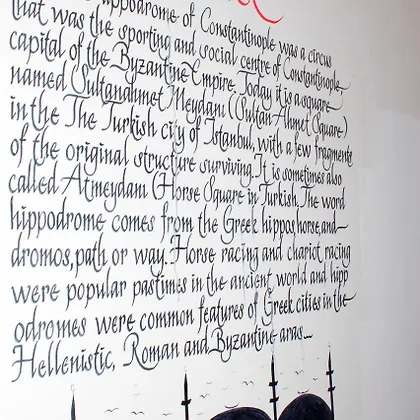 ppodrome of Constantinople was a circus
that was the sporting and social centre of Constantinople,
capital of the Byzantine Empire. Today it is a square
named Sultanahmet Meydanı (Sultan Ahmet Square)
in the The Turkish city of Istanbul, with a few fragments
of the original structure surviving. It is sometimes also
called Atmeydanı (Horse Square in Turkish. The word
hippodrome comes from the Greek hippos, horse, and
dromos, path or way. Horse racing and chariot racing
were popular pastimes in the ancient world and hipp
odromes were common features of Greek cities in the
Hellenistic, Roman and Byzantine aras